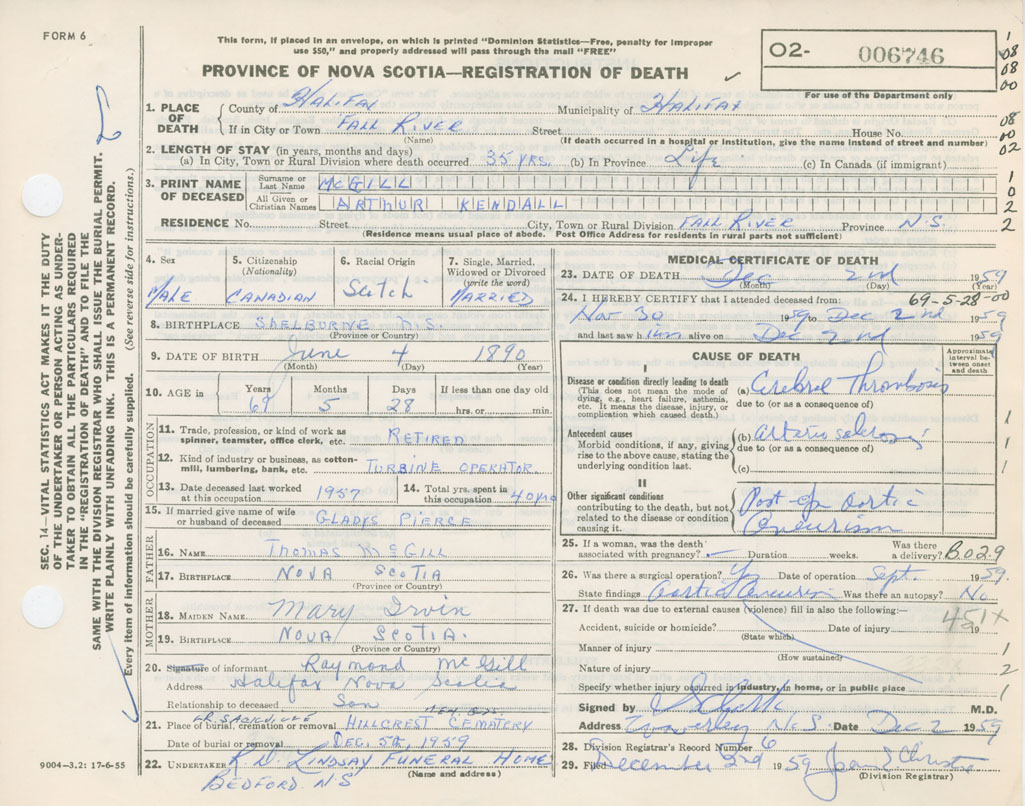 FORM 6
This form, if placed in an envelope, on which is printed "Dominion Statistics—Free, penalty for improper
use $50," and properly addressed will pass through the mail "FREE"
PROVINCE OF NOVA SCOTIA—REGISTRATION OF DEATH
O2- 006746
For use of the Department only
1
08
08
00
08
00
02
1
0
2
2
SEC. 14—VITAL STATISTICS ACT MAKES IT THE DUTY
OF THE UNDERTAKER OR PERSON ACTING AS UNDER-
TAKER TO OBTAIN ALL THE PARTICULARS REQUIRED
IN THE "REGISTRATION OF DEATH" AND TO FILE THE
SAME WITH THE DIVISION REGISTRAR WHO SHALL ISSUE THE BURIAL PERMIT.
WRITE PLAINLY WITH UNFADING INK. THIS IS A PERMANENT RECORD.
Every item of information should be carefully supplied. (See reverse side for instructions.)
1. PLACE OF DEATH
County of Halifax Municipality of Halifax
If in City or Town Fall River Street House No.
(Name) (If death occurred in a hospital or institution, give the name instead of street and number)
2. LENGTH OF STAY (in years, months and days)
(a) In City, Town or Rural Division where death occurred 35 yrs. (b) In Province Life (c) In Canada (if immigrant)
3. PRINT NAME OF DECEASED
Surname or Last Name McGILL
All Given or Christian Names ARTHUR KENDALL
RESIDENCE No. Street City, Town or Rural Division Fall River Province N.S.
(Residence means usual place of abode. Post Office Address for residents in rural parts not sufficient)
4. Sex
Male
5. Citizenship
(Nationality)
Canadian
6. Racial Origin
Scotch
7. Single, Married, Widowed or Divorced
(write the word)
Married
8. BIRTHPLACE Shelburne N.S.
(Province or Country)
9. DATE OF BIRTH June 4 1890
(Month) (Day) (Year)
10. AGE in
Years Months Days If less than one day old
69 5 28 hrs. or min.
OCCUPATION
11. Trade, profession, or kind of work as
spinner, teamster, office clerk, etc. Retired
12. Kind of industry or business, as cotton-
mill, lumbering, bank, etc. Turbine Operator
13. Date deceased last worked
at this occupation 1957
14. Total yrs. spent in
this occupation 40 yrs
15. If married give name of wife
or husband of deceased Gladys Pierce
FATHER
16. NAME Thomas McGill
17. BIRTHPLACE Nova Scotia
(Province or Country)
MOTHER
18. MAIDEN NAME Mary Irvin
19. BIRTHPLACE Nova Scotia.
(Province or Country)
20. Signature of informant Raymond McGill
Address Halifax Nova Scotia
Relationship to deceased Son
LR. SACKVILLE
21. Place of burial, cremation or removal Hillcrest Cematery
Date of burial or removal Dec. 5th, 1959
22. UNDERTAKER Lindsay Funeral Home
(Name and address)
Bedford NS
9004—3.2: 17-6-55
MEDICAL CERTIFICATE OF DEATH
23. DATE OF DEATH Dec 2nd 1959
(Month) (Day) (Year)
24. I HEREBY CERTIFY that I attended deceased from: 69-5-28-00
Nov 30 1959 to Dec 2nd 1959
and last saw him alive on Dec 2nd 1959
CAUSE OF DEATH
Approximate interval between onset and death
I
Disease or condition directly leading to death
(This does not mean the mode of
dying, e.g., heart failure, asthenia,
etc. It means the disease, injury, or
complication which caused death.)
(a) Cerebral Thrombosis
due to (or as a consequence of)
Antecedent causes
Morbid conditions, if any, giving
rise to the above cause, stating the
underlying condition last.
(b)
due to (or as a consequence of)
(c)
II
Other significant conditions
contributing to the death, but not
related to the disease or condition
causing it.
Post-op aortic
Aneurism
1
1
1
25. If a woman, was the death
associated with pregnancy? Duration weeks. Was there a delivery? B.029
26. Was there a surgical operation? Yes Date of operation Sept. 1959.
State findings Aortic Aneurism Was there an autopsy? No
27. If death was due to external causes (violence) fill in also the following:—
451X
Accident, suicide or homicide? Date of injury 19
(State which)
Manner of injury 1
(How sustained)
Nature of injury 2
Specify whether injury occurred in industry, in home, or in public place 1
Signed by M.D.
Address Waverley N.S. Date Dec 2 1959
28. Division Registrar's Record Number 6
29. Filed December 1959
(Division Registrar)